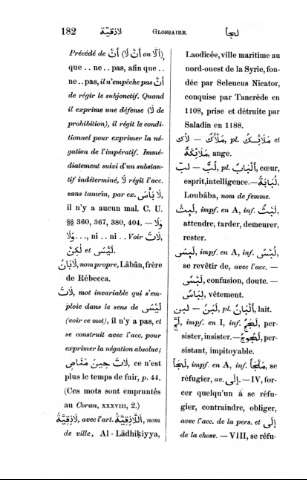 182 لاذقيّة GLOSSAIRE لجأ
Précédé de أَنْ (أَنْ لَا en أَلَّا),
que .. ne .. pas, afin que ..
ne .. pas, il n'empêche pas أَنْ
de régir le subjonctif. Quand
il exprime une défense (لَا de
prohibition), il régit le condi-
tionnel pour exprimer la né-
gation de l'impératif. Immé-
diatement suivi d'un substan-
tif indéterminé, لَا régit l'acc.
sans tanwin, par ex. لَا بَأْسَ,
il n'y a aucun mal. C. U.
§§ 360, 367, 380, 404. — وَلَا
وَلَا .. , ni .. ni .. Voir لَاتَ,
لٰكِنْ et لَيْسَ.
لَابَانُ, nom propre, Lâbân, frère
de Rébecca.
لَاتَ, mot invariable qui s'em-
ploie dans le sens de لَيْسَ
(voir ce mot), il n'y a pas, et
se construit avec l'acc., pour
exprimer la négation absolue;
لَاتَ حِينَ مَنَاصٍ, ce n'est
plus le temps de fuir, p. 44.
(Ces mots sont empruntés
au Coran, XXXVIII, 2.)
لَاذِقِيَّةُ, avec l'art. اللَّاذِقِيَّةُ, nom
de ville, Al-Lâdhiḳiyya,
Laodicée, ville maritime au
nord-ouest de la Syrie, fon-
dée par Seleucus Nicator,
conquise par Tancrède en
1108, prise et détruite par
Saladin en 1188.
مَلَائِكُ .pl ,مَلْأَكٌ — لأك et
مَلَائِكَةٌ, ange.
لُبٌّ — لبّ, pl. أَلْبَابٌ, cœur,
esprit, intelligence. — لُبَابَةُ,
Loubâba, nom de femme.
لَبِثَ, impf. en A, inf. لَبْثٌ,
attendre, tarder, demeurer,
rester.
لَبِسَ, impf. en A, inf. لُبْسٌ,
se revêtir de, avec l'acc. —
لَبْسٌ, confusion, doute. —
لِبَاسٌ, vêtement.
لَبَنٌ — لبن, pl. أَلْبَانٌ, lait.
لَجَّ, impf. en I, inf. لَجَجٌ, per-
sister, insister. — لَجُوجٌ, per-
sistant, impitoyable.
لَجَأَ, impf. en A, inf. مَلْجَأٌ, se
réfugier, av. إِلَى. — IV, for-
cer quelqu'un à se réfu-
gier, contraindre, obliger,
avec l'acc. de la pers. et إِلَى
de la chose. — VIII, se réfu-